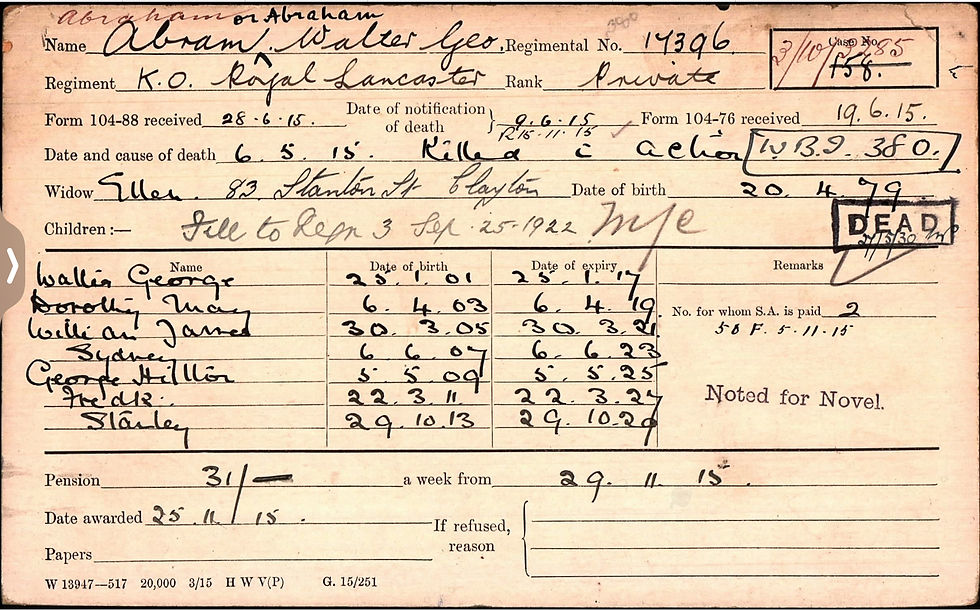 Abraham or Abraham
Name Abram, Walter Geo, Regimental No. 17396
3/10/3285 Case No. 158.
Regiment K.O. Royal Lancaster Rank Private
Form 104-88 received 28.6.15. Date of notification of death } 9.6.15 Form 104-76 received 19.6.15.
R 15.11.15
Date and cause of death 6.5.15. Killed i action W.B.I. 380.
Widow Ellen. 83 Stanton St Clayton Date of birth 20.4.79
Children :— Sep. 25-1922
DEAD
Name Date of birth Date of expiry Remarks
Walter George 25.1.01 25.1.17
Dorothy May 6.4.03 6.4.19
No. for whom S.A. is paid 2
William James 30.3.05 30.3.21
5.11.15
Sydney 6.6.07 6.6.23
George Hilton 5.5.09 5.5.25
Fredk. 22.3.11 22.3.27
Noted for Novel.
Stanley 29.10.13 29.10.29
Pension 31/— a week from 29.11.15
Date awarded 25.11.15. If refused, reason
Papers
W 13947—517 20,000 3/15 H W V(P) G. 15/251